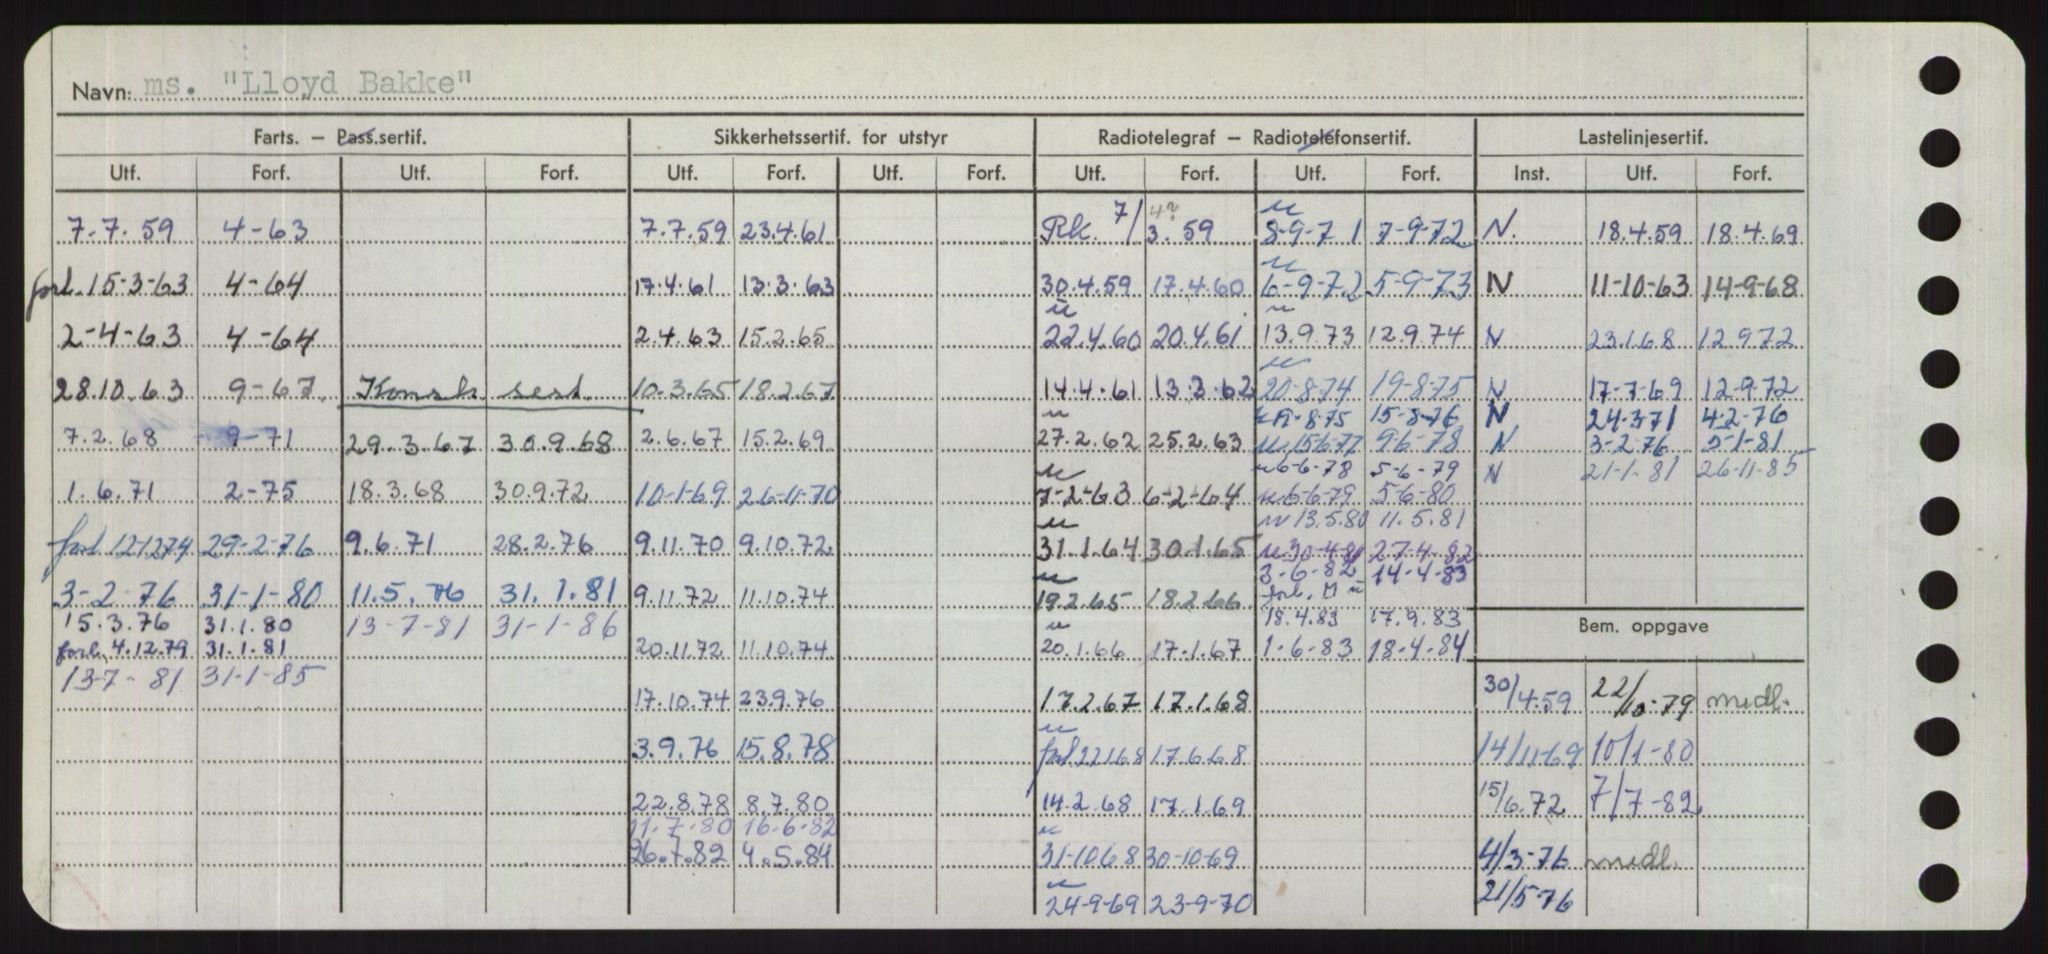 Navn: ms. "Lloyd Bakke"
Farts. — Pass.sertif. Sikkerhetssertif. for utstyr Radiotelegraf — Radiotelefonsertif. Lastelinjesertif.
Utf. Forf. Utf. Forf. Utf. Forf. Utf. Forf. Utf. Forf. Utf. Forf. Inst. Utf. Forf.
7.7.59 4-63 7.7.59 23.4.61 Rk. 7/3.59 8-9-71 7-9-72 N. 18.4.59 18.4.69
forl. 15-3-63 4-64 17.4.61 13.3.63 30.4.59 17.4.60 6-9-72 5-9-73 N 11-10-63 14-9-68
2-4-63 4-64 2.4.63 15.2.65 22.4.60 20.4.61 13.9.73 12.9.74 N 23.1.68 12.9.72
28.10.63 9-67 Konsk sert. 10.3.65 18.2.67 14.4.61 13.3.62 20-8-74 19-8-75 N 17-7-69 12-9-72
19-8-75 15-8-76 N 24-3-71 4-2-76
7.2.68 9-71 29.3.67 30.9.68 2.6.67 15.2.69 27.2.62 25.2.63 15-6-77 9-6-78 N 3-2-76 5-1-81
6-6-78 5-6-79 N 21-1-81 26-11-85
1.6.71 2-75 18.3.68 30.9.72 10-1-69 26-11-70 7-2-63 6-2-64 6-6-79 5-6-80
13.5.80 11.5.81
forl 12-12-74 29-2-76 9.6.71 28.2.76 9.11.70 9.10.72 31.1.64 30.1.65 30-4-81 27-4-82
3-6-82 14-4-83
3-2-76 31-1-80 11.5.76 31.1.81 9.11.72 11.10.74 19.2.65 18.2.66 forl.
15.3.76 31.1.80 13-7-81 31-1-86 18.4.83 17.9.83
Bem. oppgave
forl. 4.12.79 31.1.81 20.11.72 11.10.74 20.1.66 17.1.67 1-6-83 18-4-84
13-7-81 31-1-85
17.10.74 23.9.76 17.2.67 17.1.68 30/4.59 22/10-79 midl.
3.9.76 15.8.78 forl. 22.1.68 17.6.68 14/11-69 10/1-80
22.8.78 8.7.80 14.2.68 17.1.69 15/6.72 7/7-82
11-7-80 16-6-82
26.7.82 4.5.84 31-10.68 30-10-69 4/3-76 midl.
24-9-69 23-9-70 21/5-76